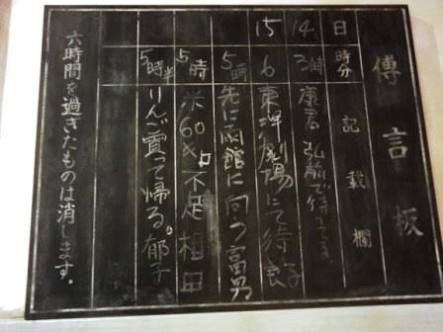 傳言板
日 時分 記載欄
14 3時 康君 弘前で待ってる
15 6 東坪劇場にて待 良子
5時 先に函館に向つ 富男
5時 米60 不足 相田
5時半 りんご賣って帰る。郁子
六時間を過ぎたものは消します。